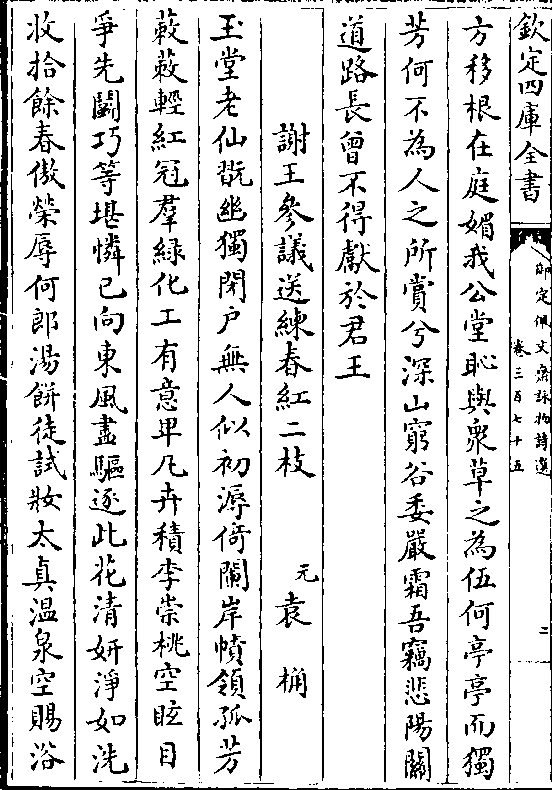 欽定四庫全書
御定佩文齋詠物詩選
卷三百七十五
二
方移根在庭媚我公堂恥與衆草之為伍何亭亭而獨
芳何不為人之所賞兮深山窮谷委嚴霜吾竊悲陽關
道路長曾不得獻於君王
謝王參議送練春紅二枝
元袁桷
玉堂老仙翫幽獨閉户無人似初溽倚闌岸幘領孤芳
蔌蔌輕紅冠羣緑化工有意畀凡卉積李崇桃空眩目
爭先闘巧等堪憐已向東風盡驅逐此花清妍淨如洗
收拾餘春傲榮辱何郎湯餅徒試妝太真温泉空賜浴